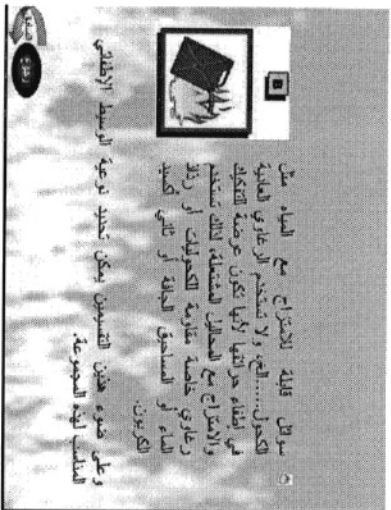 سوائل قابلة للامتزاج مع المياه مثل
الكحول.....الخ، ولا تستخدم الرغاوي العادية
في إطفاء حرائقها لأنها تكون عرضة للتفكك
والامتزاج مع المحاليل المشتعلة، لذلك تستخدم
رغاوي خاصة مقاومة للكحوليات أو رذاذ
الماء أو المساحيق الجافة أو ثاني أكسيد
الكربون.
وعلى ضوء هذين التقسيمين يمكن تحديد نوعية الوسيط الإطفائي
المناسب لهذه المجموعة.
B